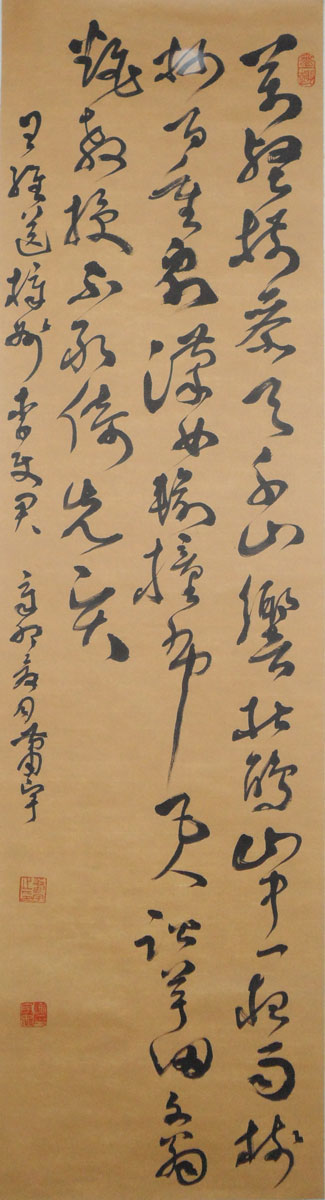 萬壑樹參天千山響杜鵑山中一夜雨樹
杪百重泉漢女輸橦布巴人訟芋田文翁
翻教授不敢倚先賢
王維送梓州李使君 辛卯 月蕭宇